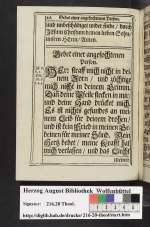 Gebet einer angefochtenen Person.
und unbeschädiget
JEsum Christum deinen lieben Sohn,
unsern HErrn, Amen.
Gebet einer angefochtenen
Person.
HErr straff mich nicht in dei-
nem Zorn / und züchtige
mich nicht in deinem Grimm.
Dan deine Pfeile stecken in mir,
und deine Hand drücket mich.
Es ist nichts gesundes an mei-
nem Leib für deinem drohen /
und ist kein Fried in meinen Ge-
beinen für meiner Sünd. Mein
Hertz bebet / meine Krafft hat
mich verlassen / und das Liecht
meiner
Herzog August Bibliothek Wolfenbüttel
Signatur: 216.20 Theol.
http://diglib.hab.de/drucke/216-20-theol/start.htm